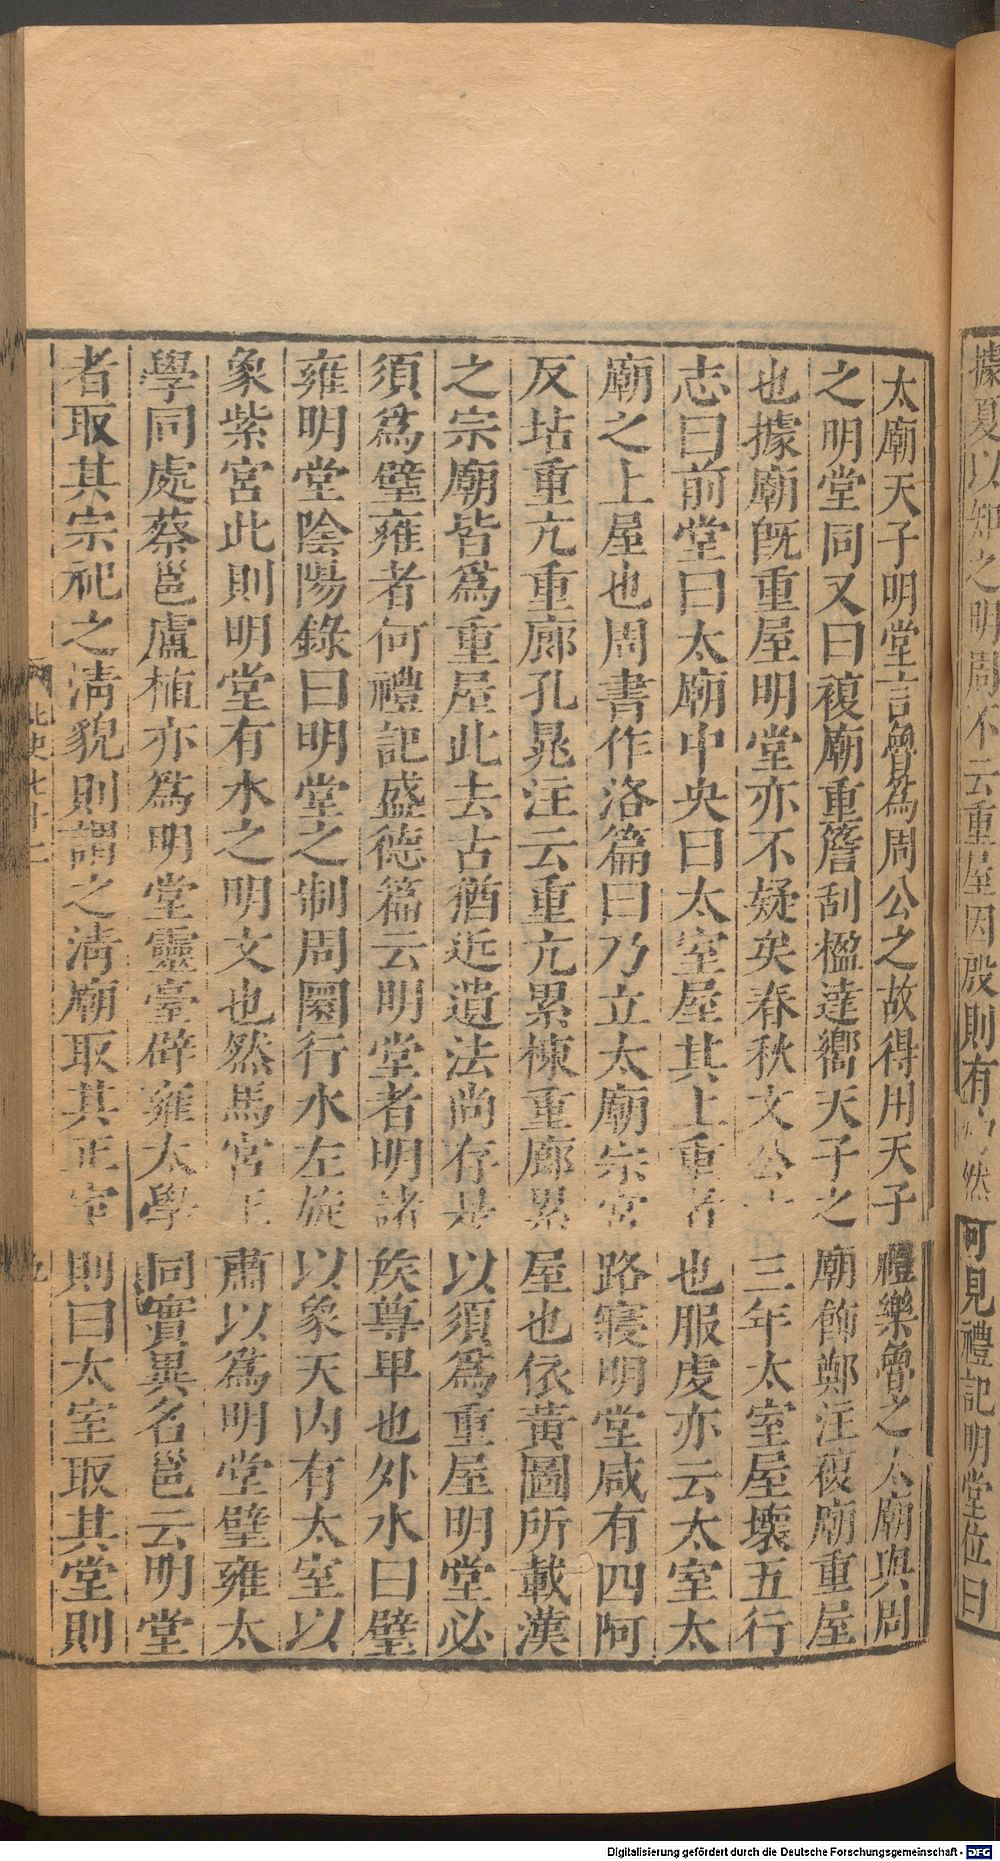 據夏以知之明周不云重屋因殷則有然可見禮記明堂位曰
太廟天子明堂言魯為周公之故得用天子禮樂魯之太廟與周
之明堂同又曰複廟重簷刮楹達嚮天子之廟飾鄭注複廟重屋
也據廟既重屋明堂亦不疑矣春秋文公十三年太室屋壞五行
志曰前堂曰太廟中央曰太室屋其上重者也服虔亦云太室太
廟之上屋也周書作洛篇曰乃立太廟宗宮路寢明堂咸有四阿
反坫重亢重廊孔晁注云重亢累棟重廊累屋也依黃圖所載漢
之宗廟皆為重屋此去古猶近遺法尚存是以須為重屋明堂必
須為璧雍者何禮記盛德篇云明堂者明諸矦尊卑也外水曰璧
雍明堂陰陽錄曰明堂之制周圜行水左旋以象天內有太室以
象紫宮此則明堂有水之明文也然馬宮王肅以為明堂璧雍太
學同處蔡邕盧植亦為明堂靈臺辟雍太學同實異名邕云明堂
者取其宗祀之清貌則謂之清廟取其正室則曰太室取其堂則
北史七十二
九
Digitalisierung gefördert durch die Deutsche Forschungsgemeinschaft - DFG